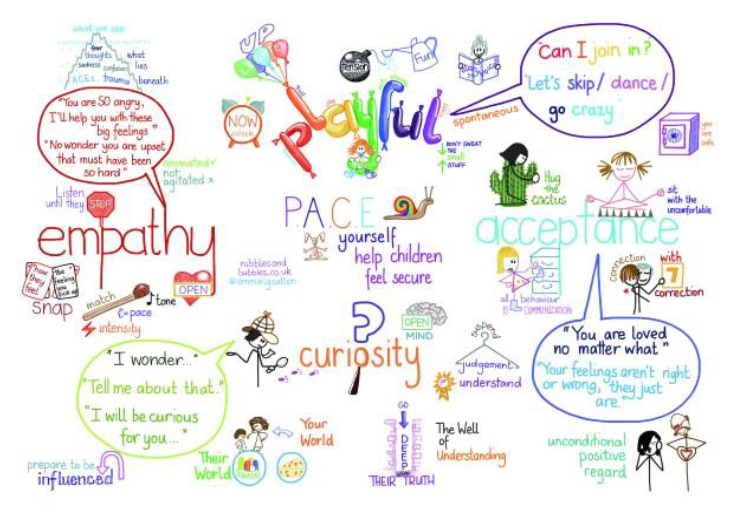 what we see
fear
thoughts
sadness
confusion
A.C.Es
trauma
what
lies
beneath
"You are SO angry,
I'll help you with these
big feelings"
"No wonder you are upset
that must have been
so hard"
animated ✓
not
agitated x
Listen
until they
STOP
empathy
"how
they
feel"
the
feeling
you
SNAP
match
tone
pace
intensity
OPEN
UP
NOW
o'clock
tension
Fun
Playful
spontaneous
DON'T SWEAT
THE
small
STUFF
"Can I join in?
"Let's skip/ dance/
go crazy"
you
are
safe
Hug
the
cactus
sit
with the
uncomfortable
P.A.C.E
yourself
help children
feel secure
nibblesand
bubbles.co.uk
@emmalysutton
acceptance
all behaviour
IS COMMUNICATION
connection
with
7
correction
"You are loved
no matter what"
"Your feelings aren't right
or wrong, they just
are."
unconditional
positive
regard
?
curiosity
OPEN
MIND
suspend
judgement
understand
"I wonder..."
"Tell me about that."
"I will be curious
for you..."
prepare to be
influenced
Your
World
Their
World
GO
DEEP
THEIR TRUTH
The Well
of
Understanding